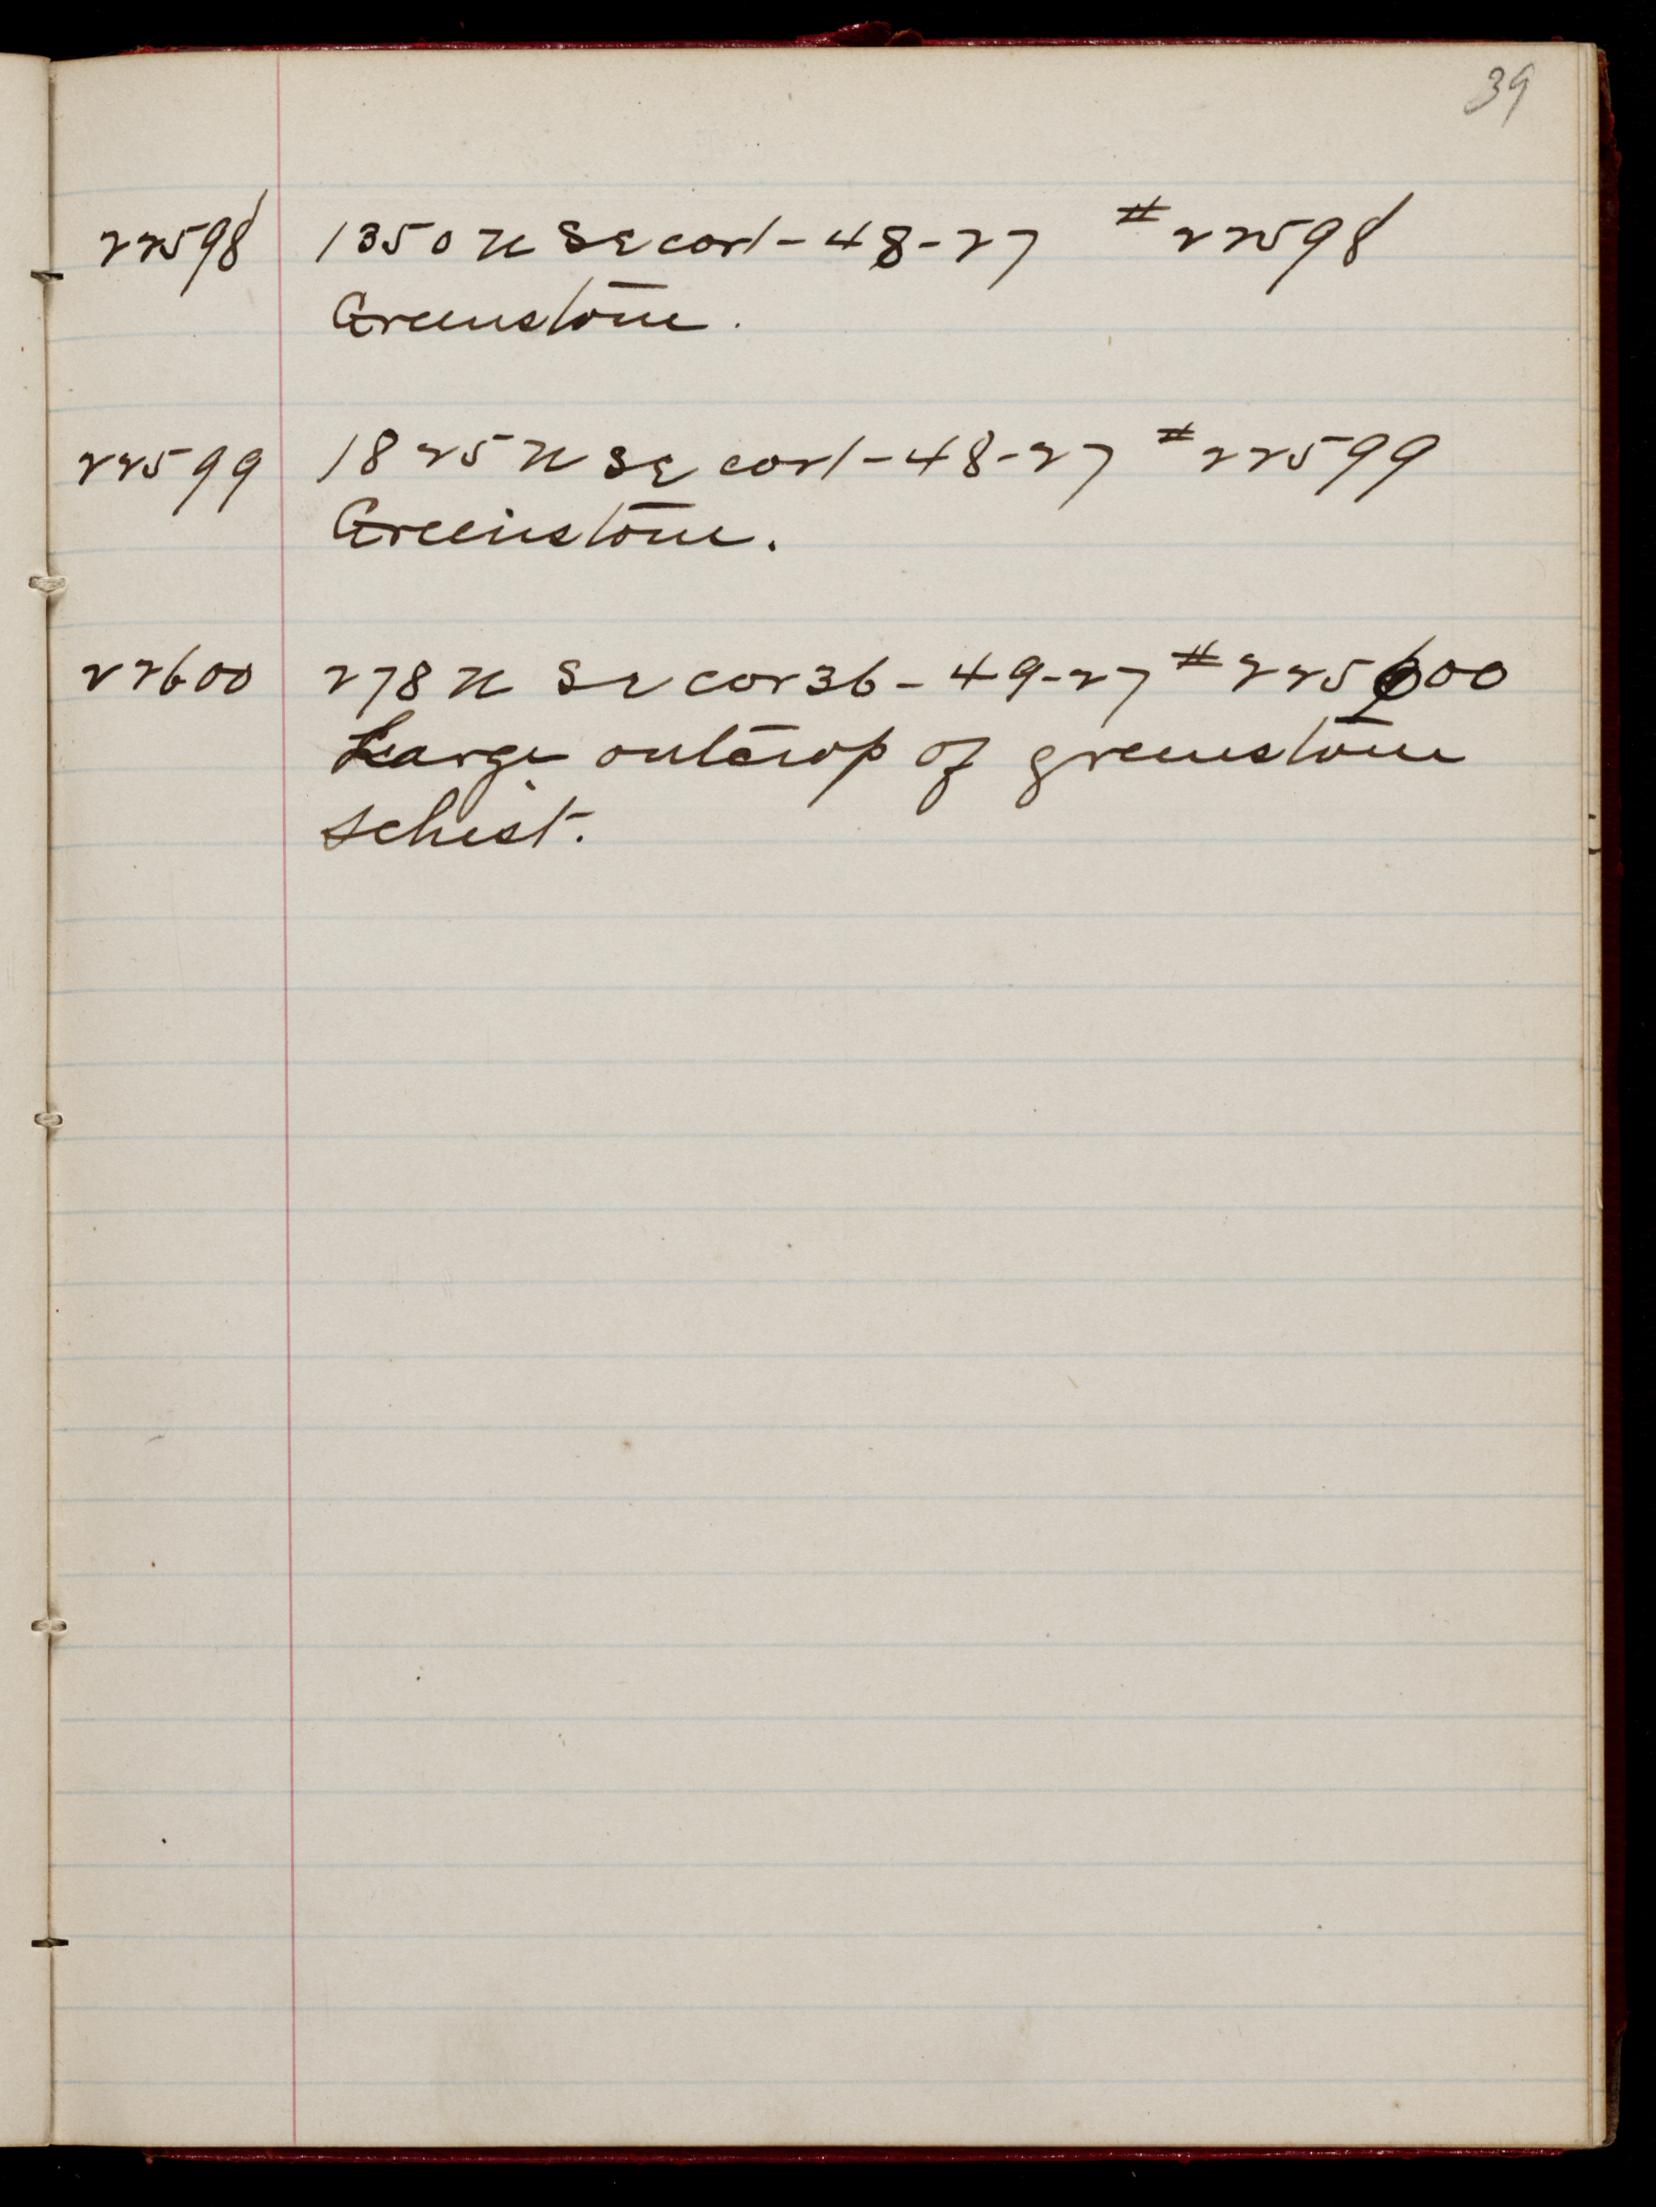 39
22598 1350 N SE cor 1-48-27 #22598
Greenstone.
22599 1825 N SE cor 1-48-27 #22599
Greenstone.
22600 278 N SE cor 36-49-27 #225600
Large outcrop of greenstone
schist.